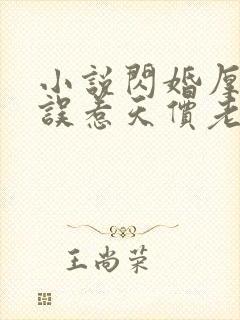 小說閃婚厚
誤惹天價老
王尚荣